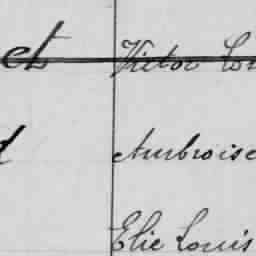 et Victor Lou
d Ambroise
Elie Louis